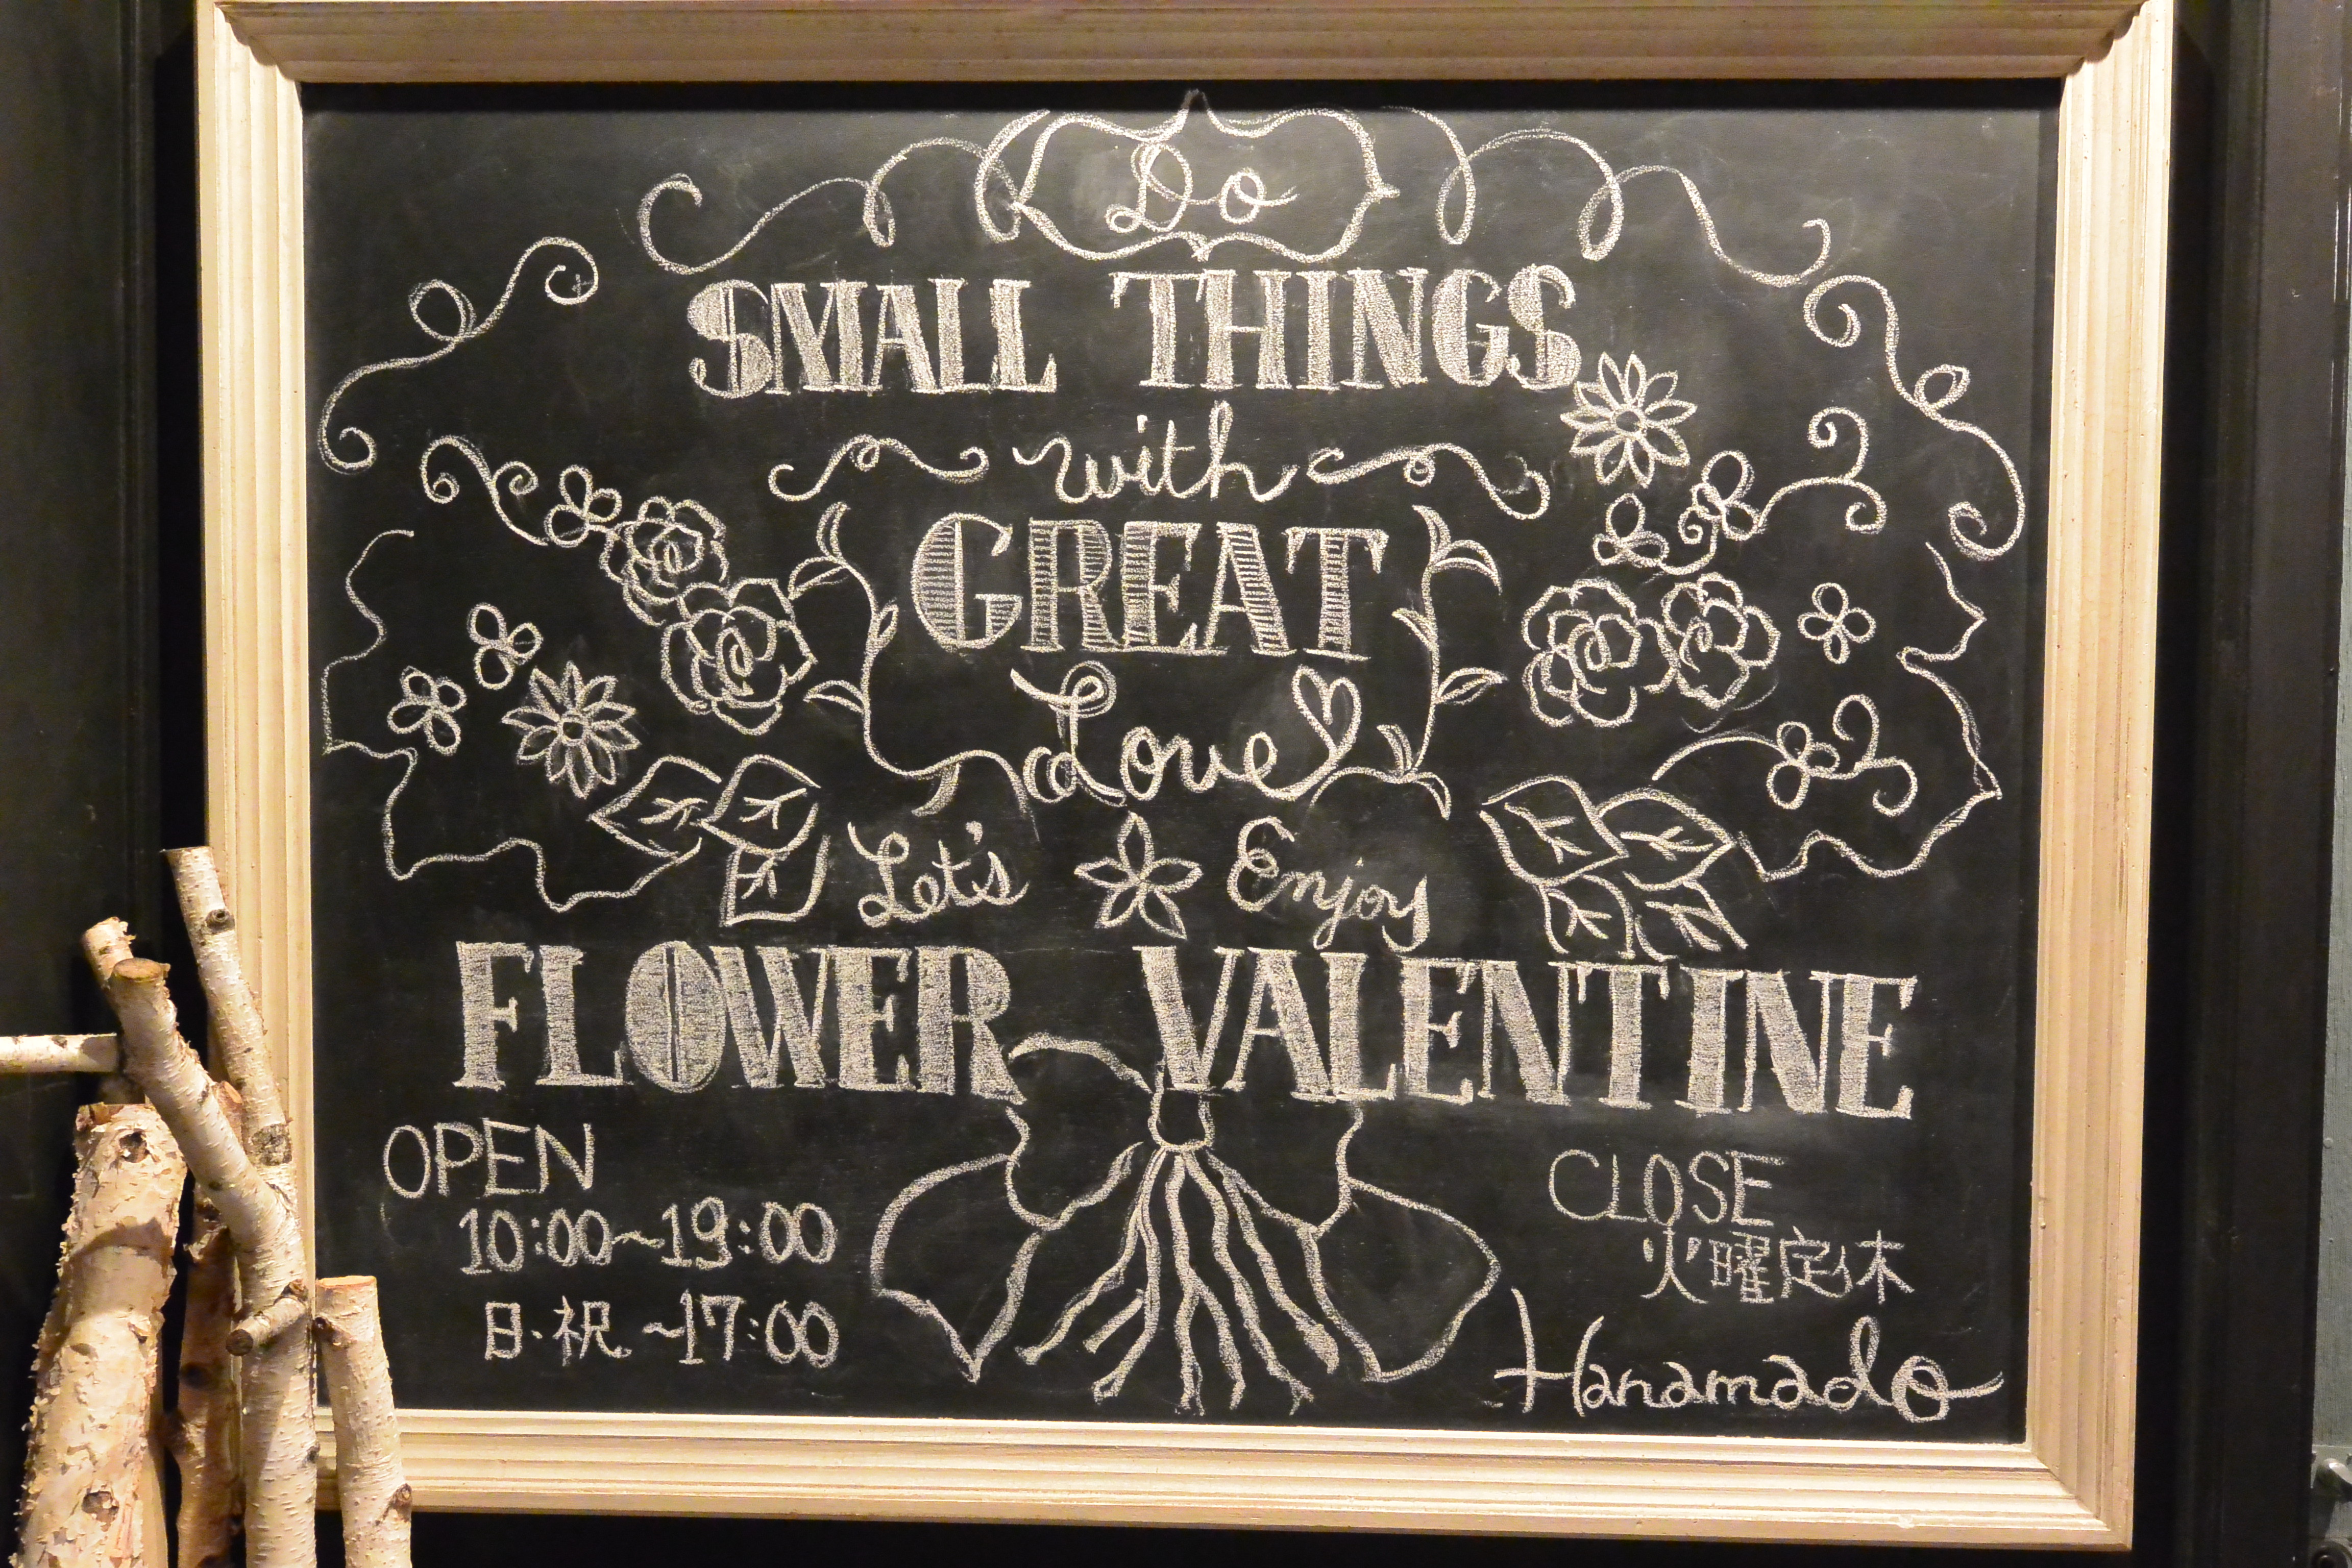 Do
SMALL THINGS
with
GREAT
Love
Let's Enjoy
FLOWER VALENTINE
OPEN
10:00~19:00
日・祝 ~17:00
CLOSE
火曜定休
Hanamado